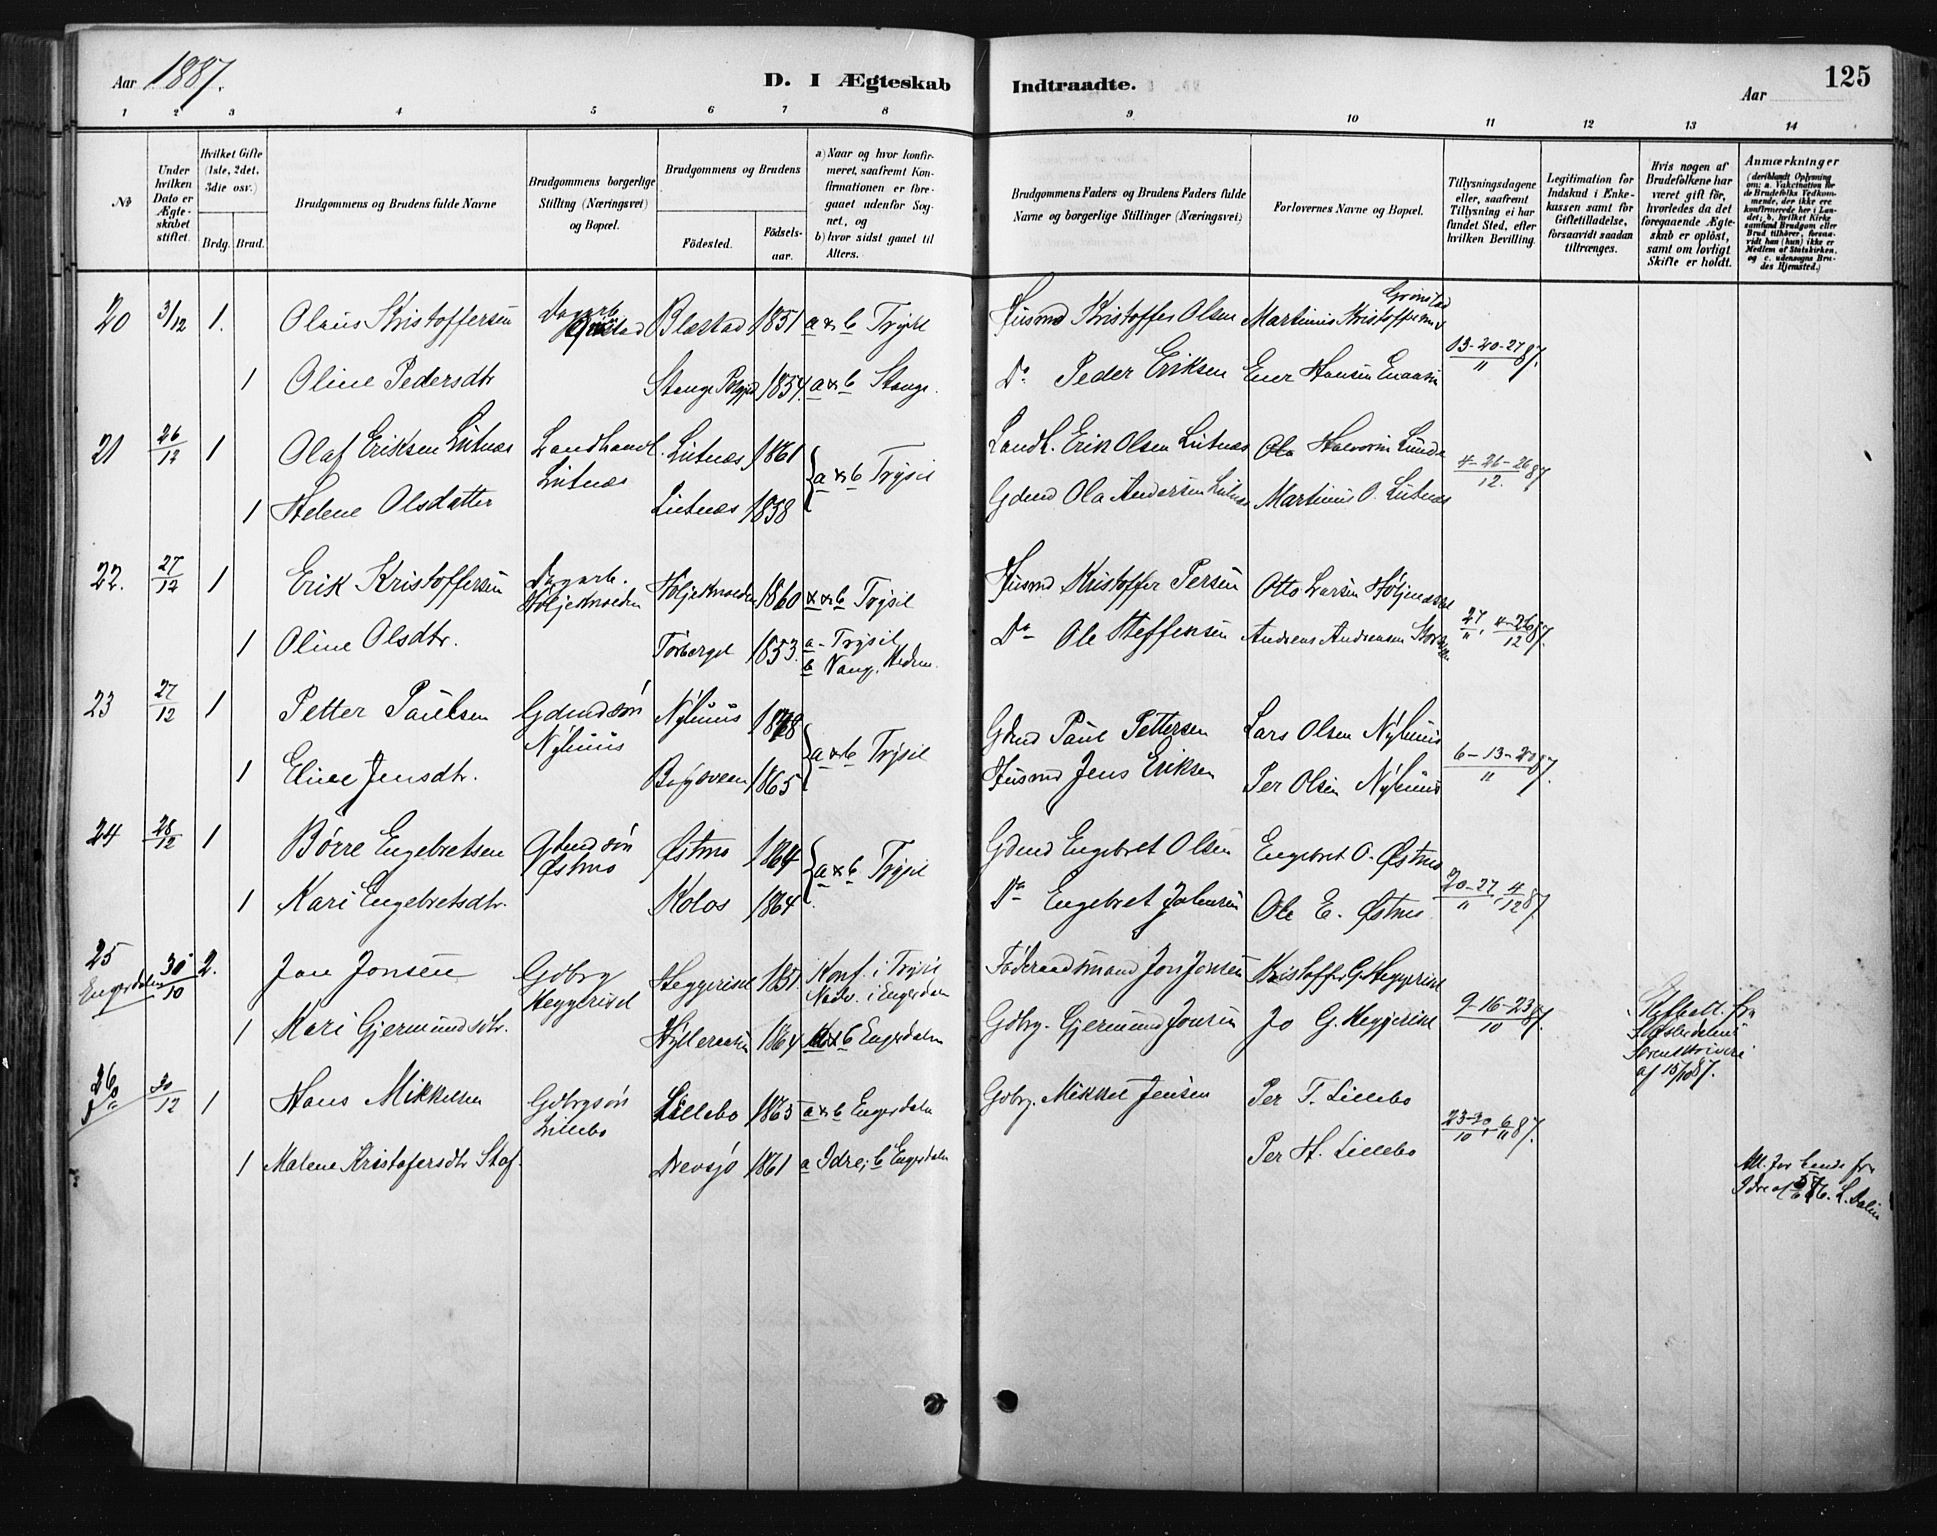 Aar 1887.
D. I Ægteskab Indtraadte.
125
Aar
1 2 3 4 5 6 7 8 9 10 11 12 13 14
№
Under hvilken Dato er Ægteskabet stiftet.
Hvilket Gifte (1ste, 2det, 3die osv.)
Brdg. Brud.
Brudgommens og Brudens fulde Navne
Brudgommens borgerlige Stilling (Næringsvei) og Bopæl.
Brudgommens og Brudens
Fødested.
Fødselsaar.
a) Naar og hvor konfirmeret, saafremt Konfirmationen er foregaaet udenfor Sognet, og
b) hvor sidst gaaet til Alters.
Brudgommens Faders og Brudens Faders fulde Navne og borgerlige Stillinger (Næringsvei)
Forlovernes Navne og Bopæl.
Tillysningsdagene eller, saafremt Tillysning ei har fundet Sted, efter hvilken Bevilling.
Legitimation for Indskud i Enkekassen samt for Giftetilladelse, forsaavidt saadan tiltrænges.
Hvis nogen af Brudefolkene har været gift før, hvorledes da det foregaaende Ægteskab er opløst, samt om lovligt Skifte er holdt.
Anmærkninger (deriblandt Oplysning om: a. Vakcination for de Brudefolks Vedkommende, der ikke ere konfirmerede her i Landet; b. hvilket Kirkesamfund Brudgom eller Brud tilhører, forsaavidt han (hun) ikke er Medlem af Statskirken, og c. udensogns Brudes Hjemsted.)
20 3/12 1. Olaus Kristoffersen Dagarb. Blæstad 1851 a & b Trysil Husmd Kristoffer Olsen Martinus Kristoffersen Grønstad
13-20-27/11 87.
1 Oline Pedersdtr Stange 1854. a & b Stange. Do Peder Eriksen Hansen
21 26/12 1 Olaf Eriksen Lutnæs Landhandl. Lutnæs Lutnæs 1861 a & b Trysil Landh. Erik Olsen Lutnæs Halvorsen Lunde
4-26-26/12. 87
1 Helene Olsdatter Lutnæs 1838 Gdmd Ola Andersen Lutnæs Martinus O. Lutnæs
22. 27/12 1 Erik Kristoffersen Dagarb. Høljeknoeden Høljeknoeden 1860 a & b Trysil Husmd Kristoffer Persen Otto Larsen
27/11, 4-26/12 87.
1 Oline Olsdtr. Tørberget 1853. a- Trysil b Vang, Hedm. Do Ole Steffensen Andreas Andreasen
23 27/12 1 Petter Paulsen Gdmdsøn Nyhuus Nyhuus 18 8 a & b Trysil Gdmd Paul Pettersen Lars Olsen Nyhuus
6-13-20/11 87.
1 Eline Jensdtr. 1865 Husmd Jens Eriksen Per Olsen Nyhuus
24 28/12 1 Børre Engebretsen Gdmdsøn Østmo Østmo 1864 a & b Trysil Gdmd Engebret Olsen Engebret O. Østmo
20-27/11, 4/12 87.
1 Kari Engebretsdtr. Kolos 1864 Do Engebret Johnsen Ole E. Østmo
25 Engerdalen 30/10 2. Jon Jonsen Gdbrg Heggerisel Heggerisel 1851 Konf. i Trysil Nadv. i Engerdalen Føderaadsmand Jon Jonsen Kristoffer G. Heggerisel
9-16-23/10 87. Skifteatt. fra Sorenskriveri af 15/10 87.
1 Kari Gjermundsdtr. 1864 b Engerdalen Gdbrg. Gjermund Jonsen Jo G. Heggerisel
26 30/12 1 Hans Mikkelsen Gdbrgsøn Lillebo Lillebo 1865 a & b Engerdalen Gdbrg. Mikkel Jensen Per T. Lillebo
23-30/10, 6/11 87.
Per H. Lillebo
1 Malene Kristofersdtr Staf Drevsjø 1861 a Idre; b Engerdalen
Att. for begge fra Idre af